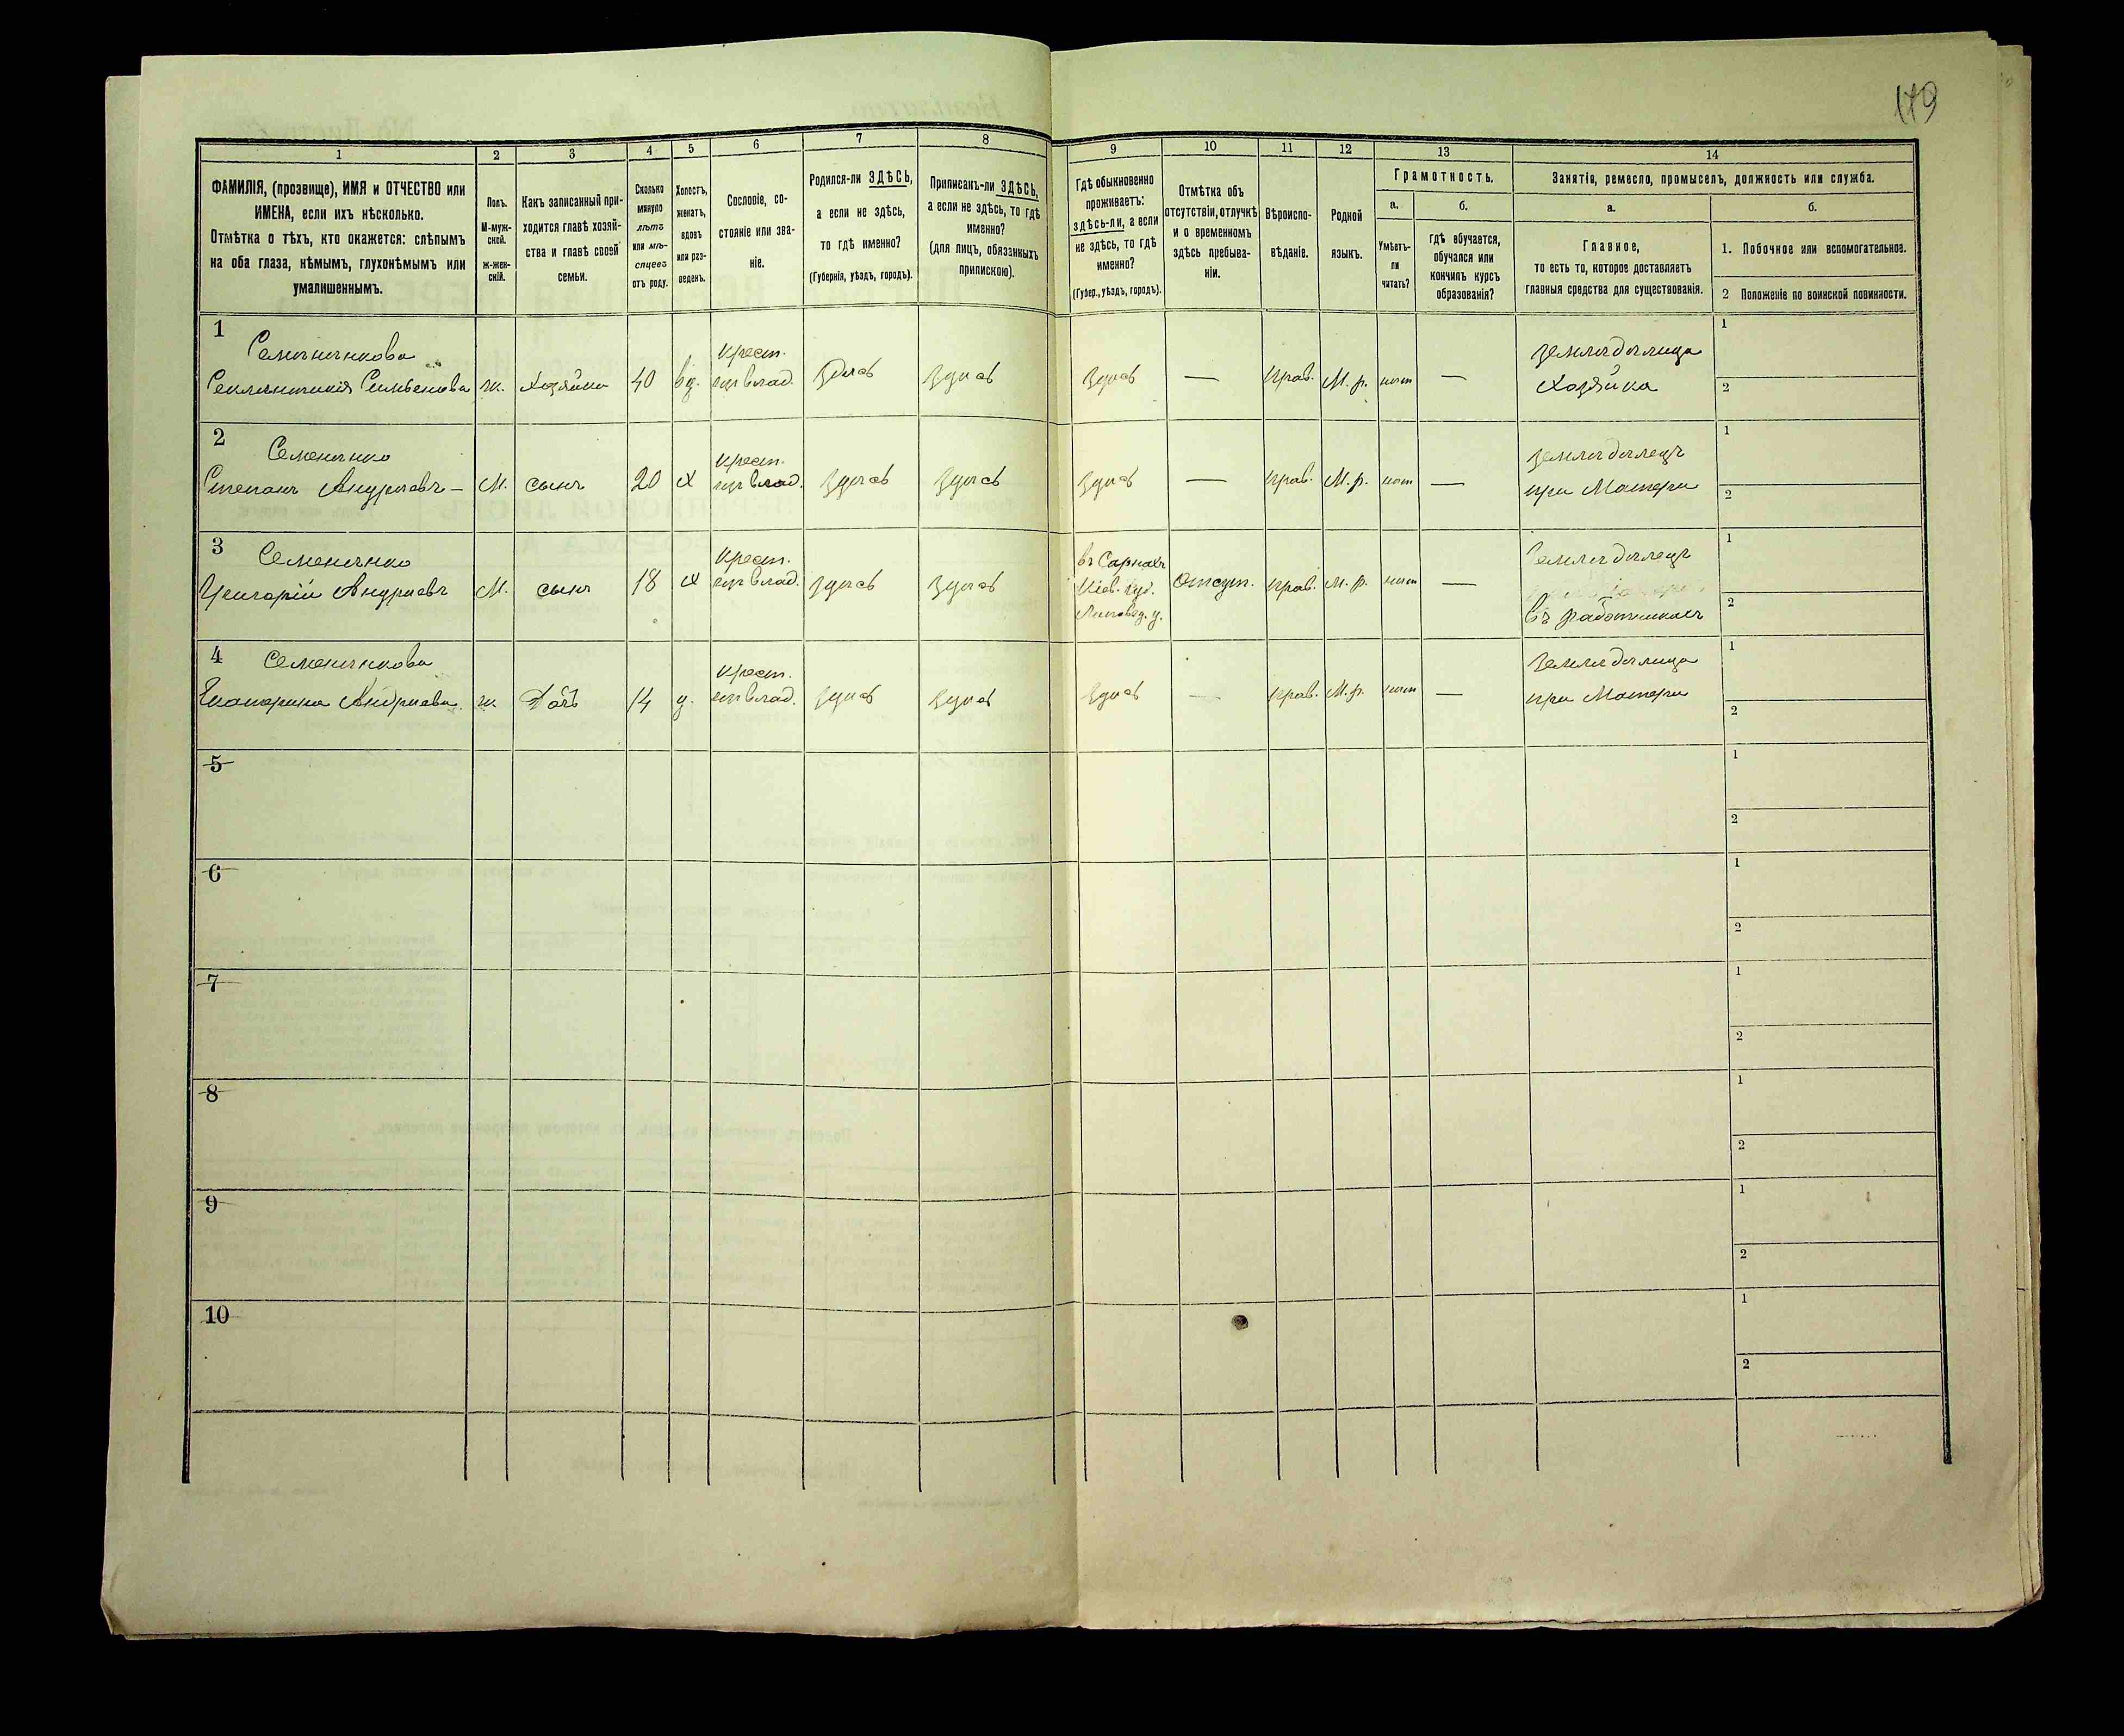 179
1 2 3 4 5 6 7 8 9 10 11 12 13 14
ФАМИЛІЯ, (прозвище), ИМЯ и ОТЧЕСТВО или
ИМЕНА, если ихъ нѣсколько.
Отмѣтка о тѣхъ, кто окажется: слѣпымъ
на оба глаза, нѣмымъ, глухонѣмымъ или
умалишеннымъ.
Полъ.
М-муж-
ской.
ж-жен-
скій.
Какъ записанный при-
ходится главѣ хозяй-
ства и главѣ своей
семьи.
Сколько
минуло
лѣтъ
или мѣ-
сяцевъ
отъ роду.
Холостъ,
женатъ,
вдовъ
или раз-
веденъ.
Сословіе, со-
стояніе или зва-
ніе.
Родился-ли ЗДѢСЬ,
а если не здѣсь,
то гдѣ именно?
(Губернія, уѣздъ, городъ).
Приписанъ-ли ЗДѢСЬ,
а если не здѣсь, то гдѣ
именно?
(для лицъ, обязанныхъ
припискою).
Гдѣ обыкновенно
проживаетъ:
здѣсь-ли, а если
не здѣсь, то гдѣ
именно?
(Губер., уѣздъ, городъ).
Отмѣтка объ
отсутствіи, отлучкѣ
и о временномъ
здѣсь пребыва-
ніи.
Вѣроиспо-
вѣданіе.
Родной
языкъ.
Грамотность.
а.
Умѣетъ-
ли
читать?
б.
гдѣ обучается,
обучался или
кончилъ курсъ
образованія?
Занятіе, ремесло, промыселъ, должность или служба.
а.
Главное,
то есть то, которое доставляетъ
главныя средства для существованія.
б.
1. Побочное или вспомогательное.
2 Положеніе по воинской повинности.
1 Семененкова крест. земледелица 1
Симеонова ж. хозяйка 40 вд. влад. Здесь Здесь Здесь — Прав. М. р. нет — Хозяйка 2
2 Семененко крест. земледелец 1
Степанъ Андреевъ — М. сынъ 20 х влад. Здесь Здесь Здесь — Прав. М. р. нет — при Матери 2
3 Семененко крест. въ Сарнахъ Земледелец 1
Григорій Андреевъ М. сынъ 18 х влад. Здесь Здесь Кіев. губ. Отсут. Прав. М. р. нет —
Липовец. у. въ работникахъ 2
4 Семененкова крест. Земледелица 1
Екатерина Андреева ж. Дочь 14 д. влад. Здесь Здесь Здесь — Прав. М. р. нет — при Матери 2
5 1
2
6 1
2
7 1
2
8 1
2
9 1
2
10 1
2